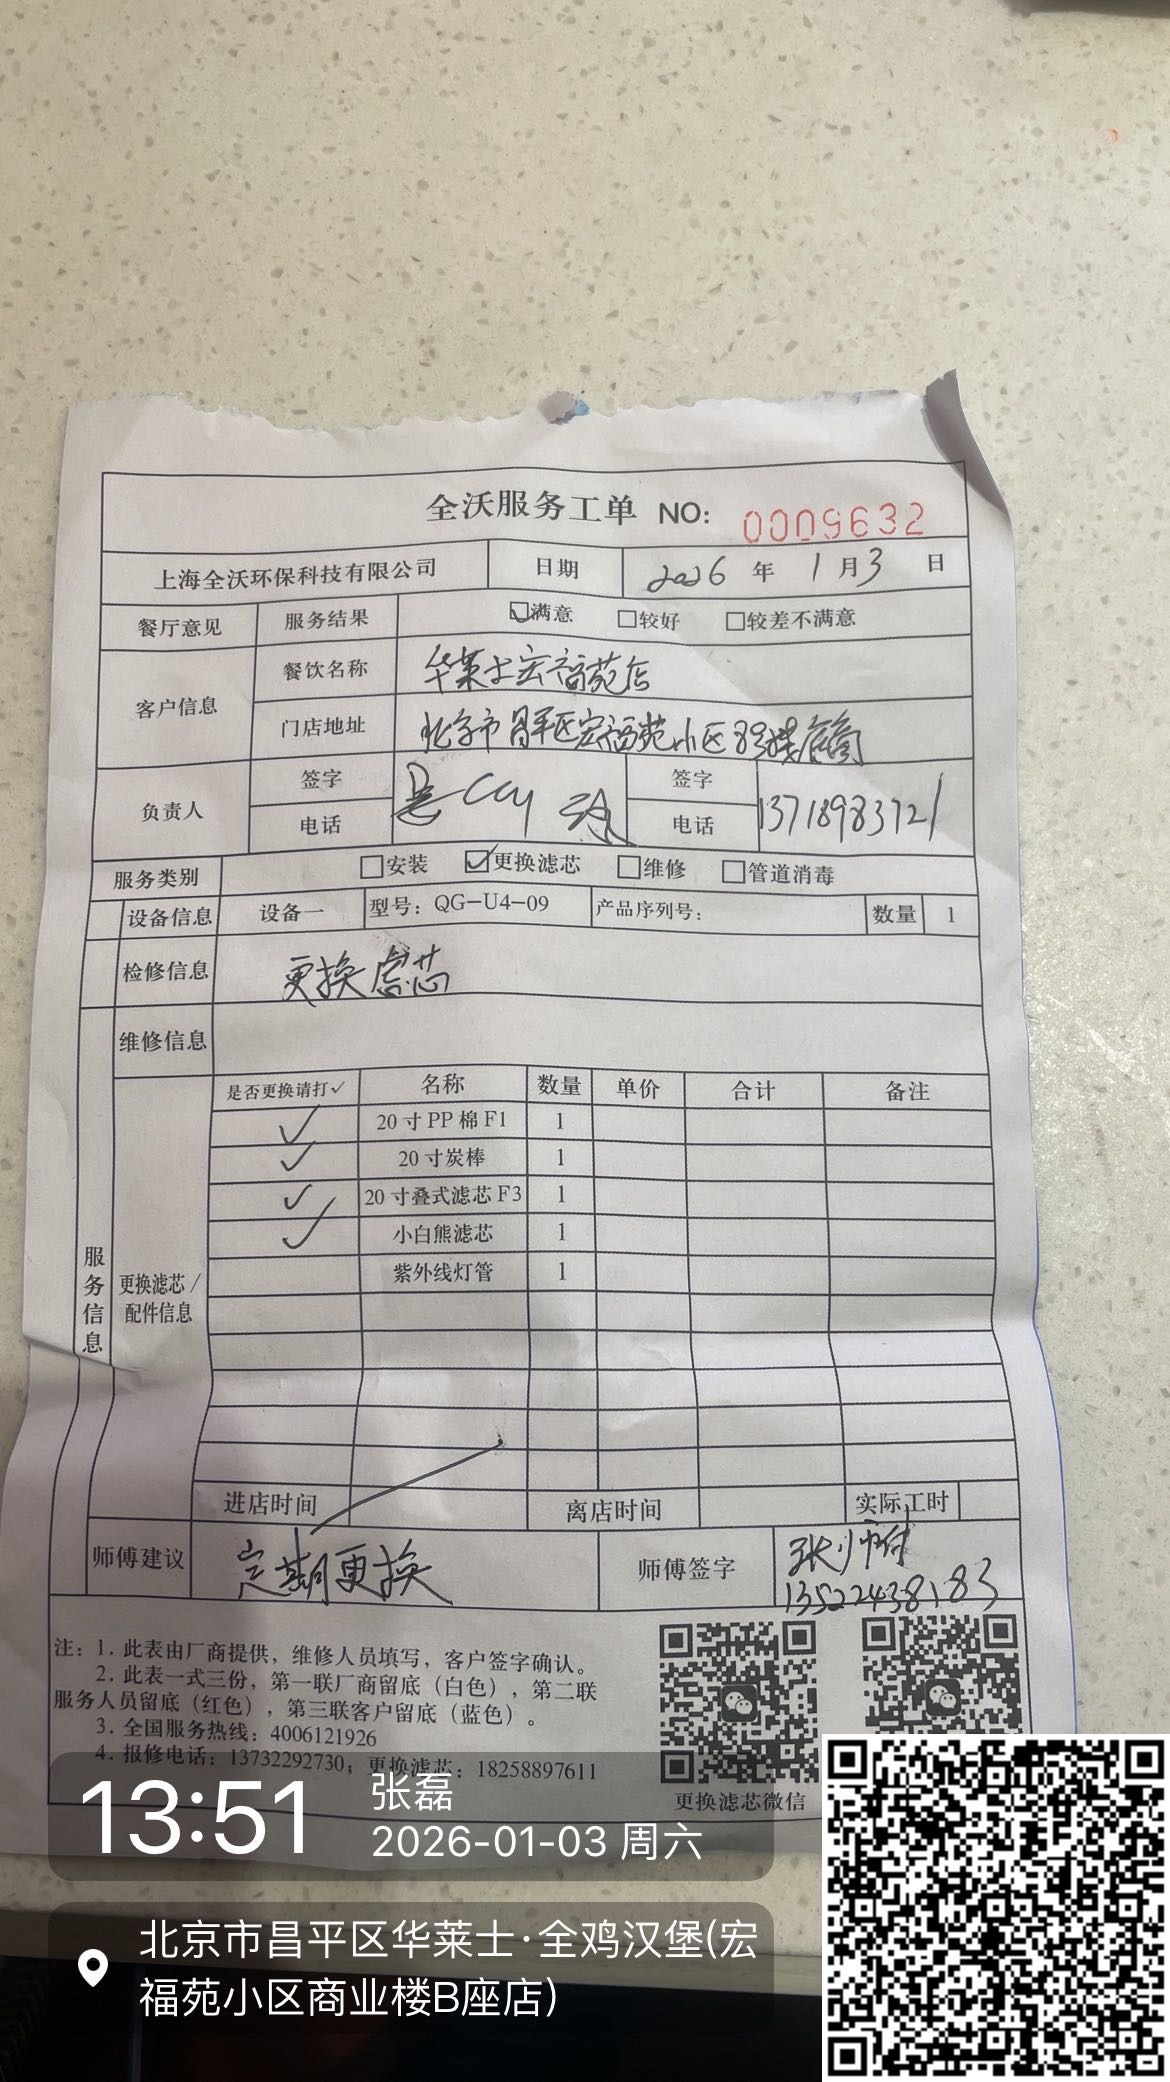 全沃服务工单 NO: 0009632
上海全沃环保科技有限公司 日期 2026 年 1 月 3 日
餐厅意见 服务结果 ☑满意 □较好 □较差不满意
客户信息 餐饮名称 华莱士宏福苑店
门店地址 北京市昌平区宏福苑小区8号楼底商
负责人 签字 签字
电话 电话 13718983721
服务类别 □安装 ☑更换滤芯 □维修 □管道消毒
设备信息 设备一 型号：QG-U4-09 产品序列号： 数量 1
检修信息 更换滤芯
维修信息
服务信息
更换滤芯/配件信息
是否更换请打✓ 名称 数量 单价 合计 备注
✓ 20寸PP棉F1 1
✓ 20寸炭棒 1
✓ 20寸叠式滤芯F3 1
✓ 小白熊滤芯 1
紫外线灯管 1
进店时间 离店时间 实际工时
师傅建议 定期更换 师傅签字 张师付
13522438183
注：1. 此表由厂商提供，维修人员填写，客户签字确认。
2. 此表一式三份，第一联厂商留底（白色），第二联
服务人员留底（红色），第三联客户留底（蓝色）。
3. 全国服务热线：4006121926
4. 报修电话：13732292730；更换滤芯：18258897611
更换滤芯微信
13:51
张磊
2026-01-03 周六
北京市昌平区华莱士·全鸡汉堡(宏
福苑小区商业楼B座店)